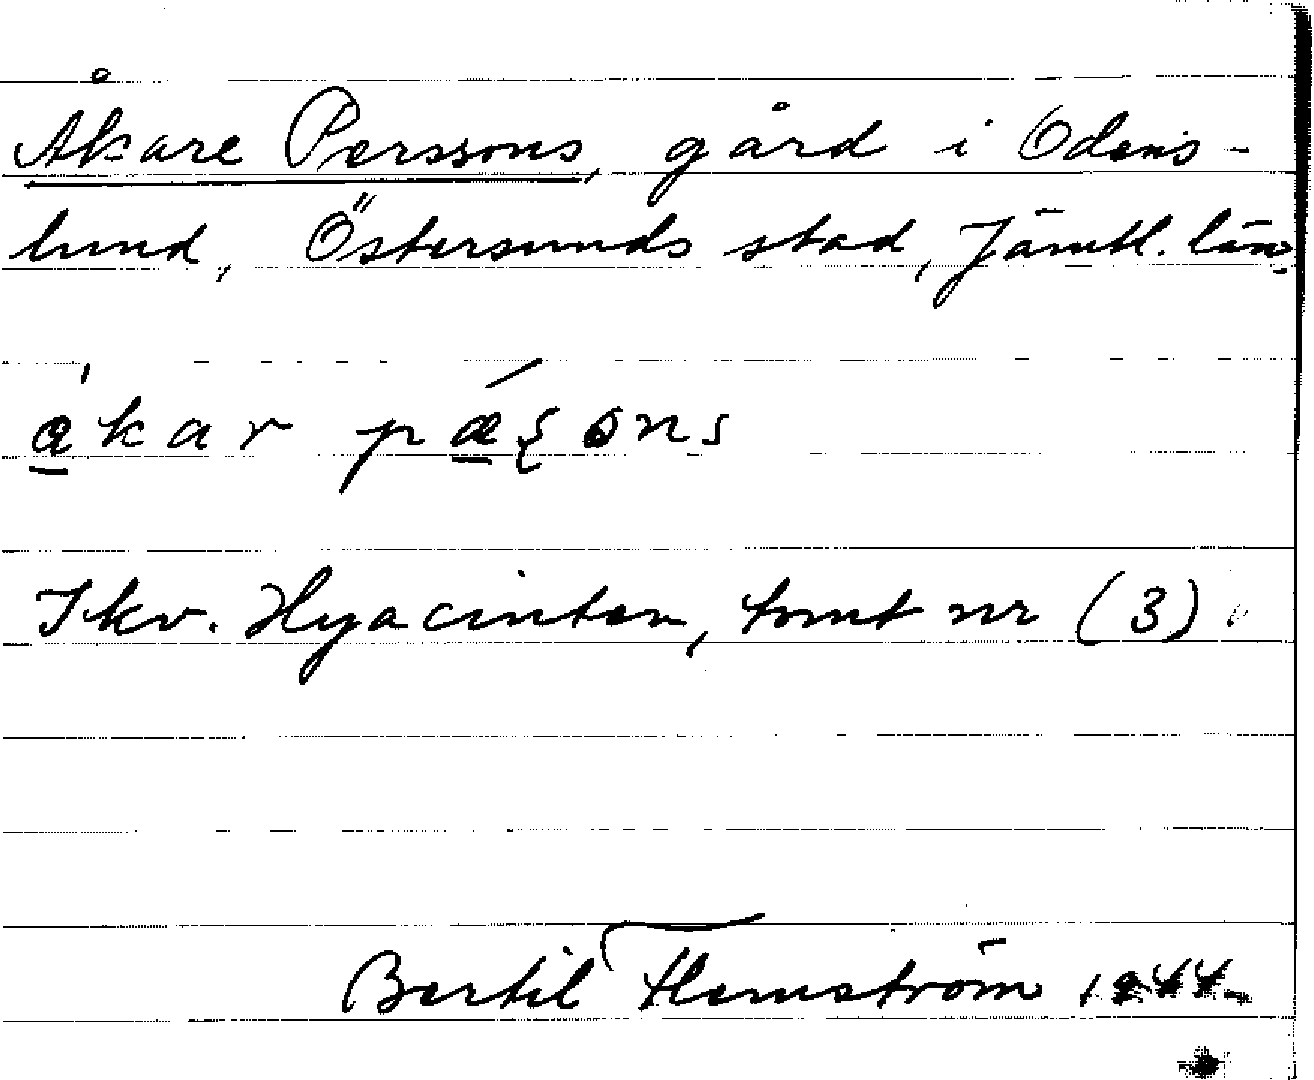 Åkare Perssons, gård i Odens-
lund, Östersunds stad, Jämtl. län.
åkar pæʂons
I kv. Hyacinten, tomt nr (3).
Bertil Flemström 1944.